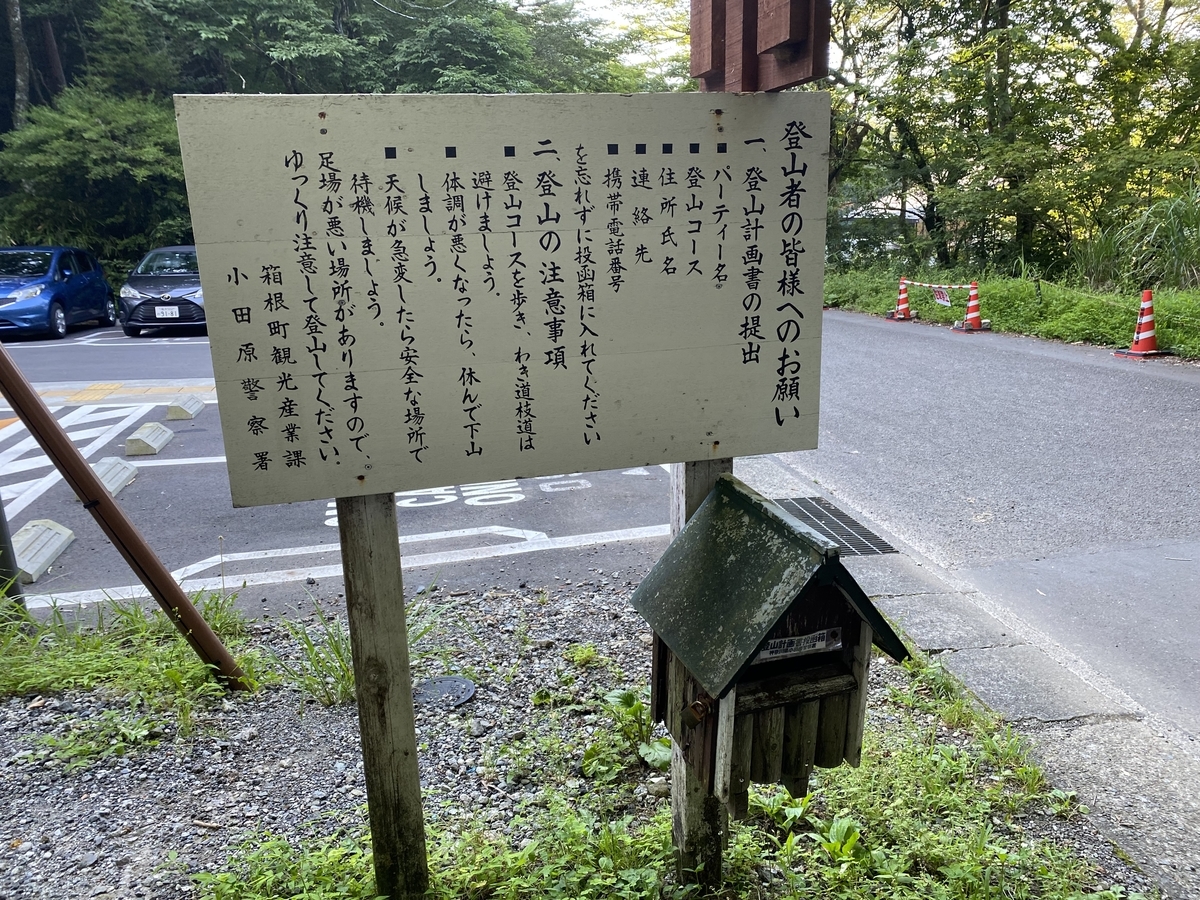 登山者の皆様へのお願い
一、登山計画書の提出
■パーティー名
■登山コース
■住所氏名
■連絡先
■携帯電話番号
を忘れずに投函箱に入れてください
二、登山の注意事項
■登山コースを歩き、わき道枝道は
避けましょう。
■体調が悪くなったら、休んで下山
しましょう。
■天候が急変したら安全な場所で
待機しましょう。
足場が悪い場所がありますので、
ゆっくり注意して登山してください。
箱根町観光産業課
小田原警察署
登山計画書投函箱